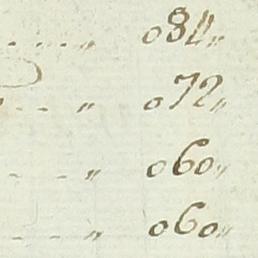 ..... „ 084„
... „ 072„
... „ 060„
.... „ 060„